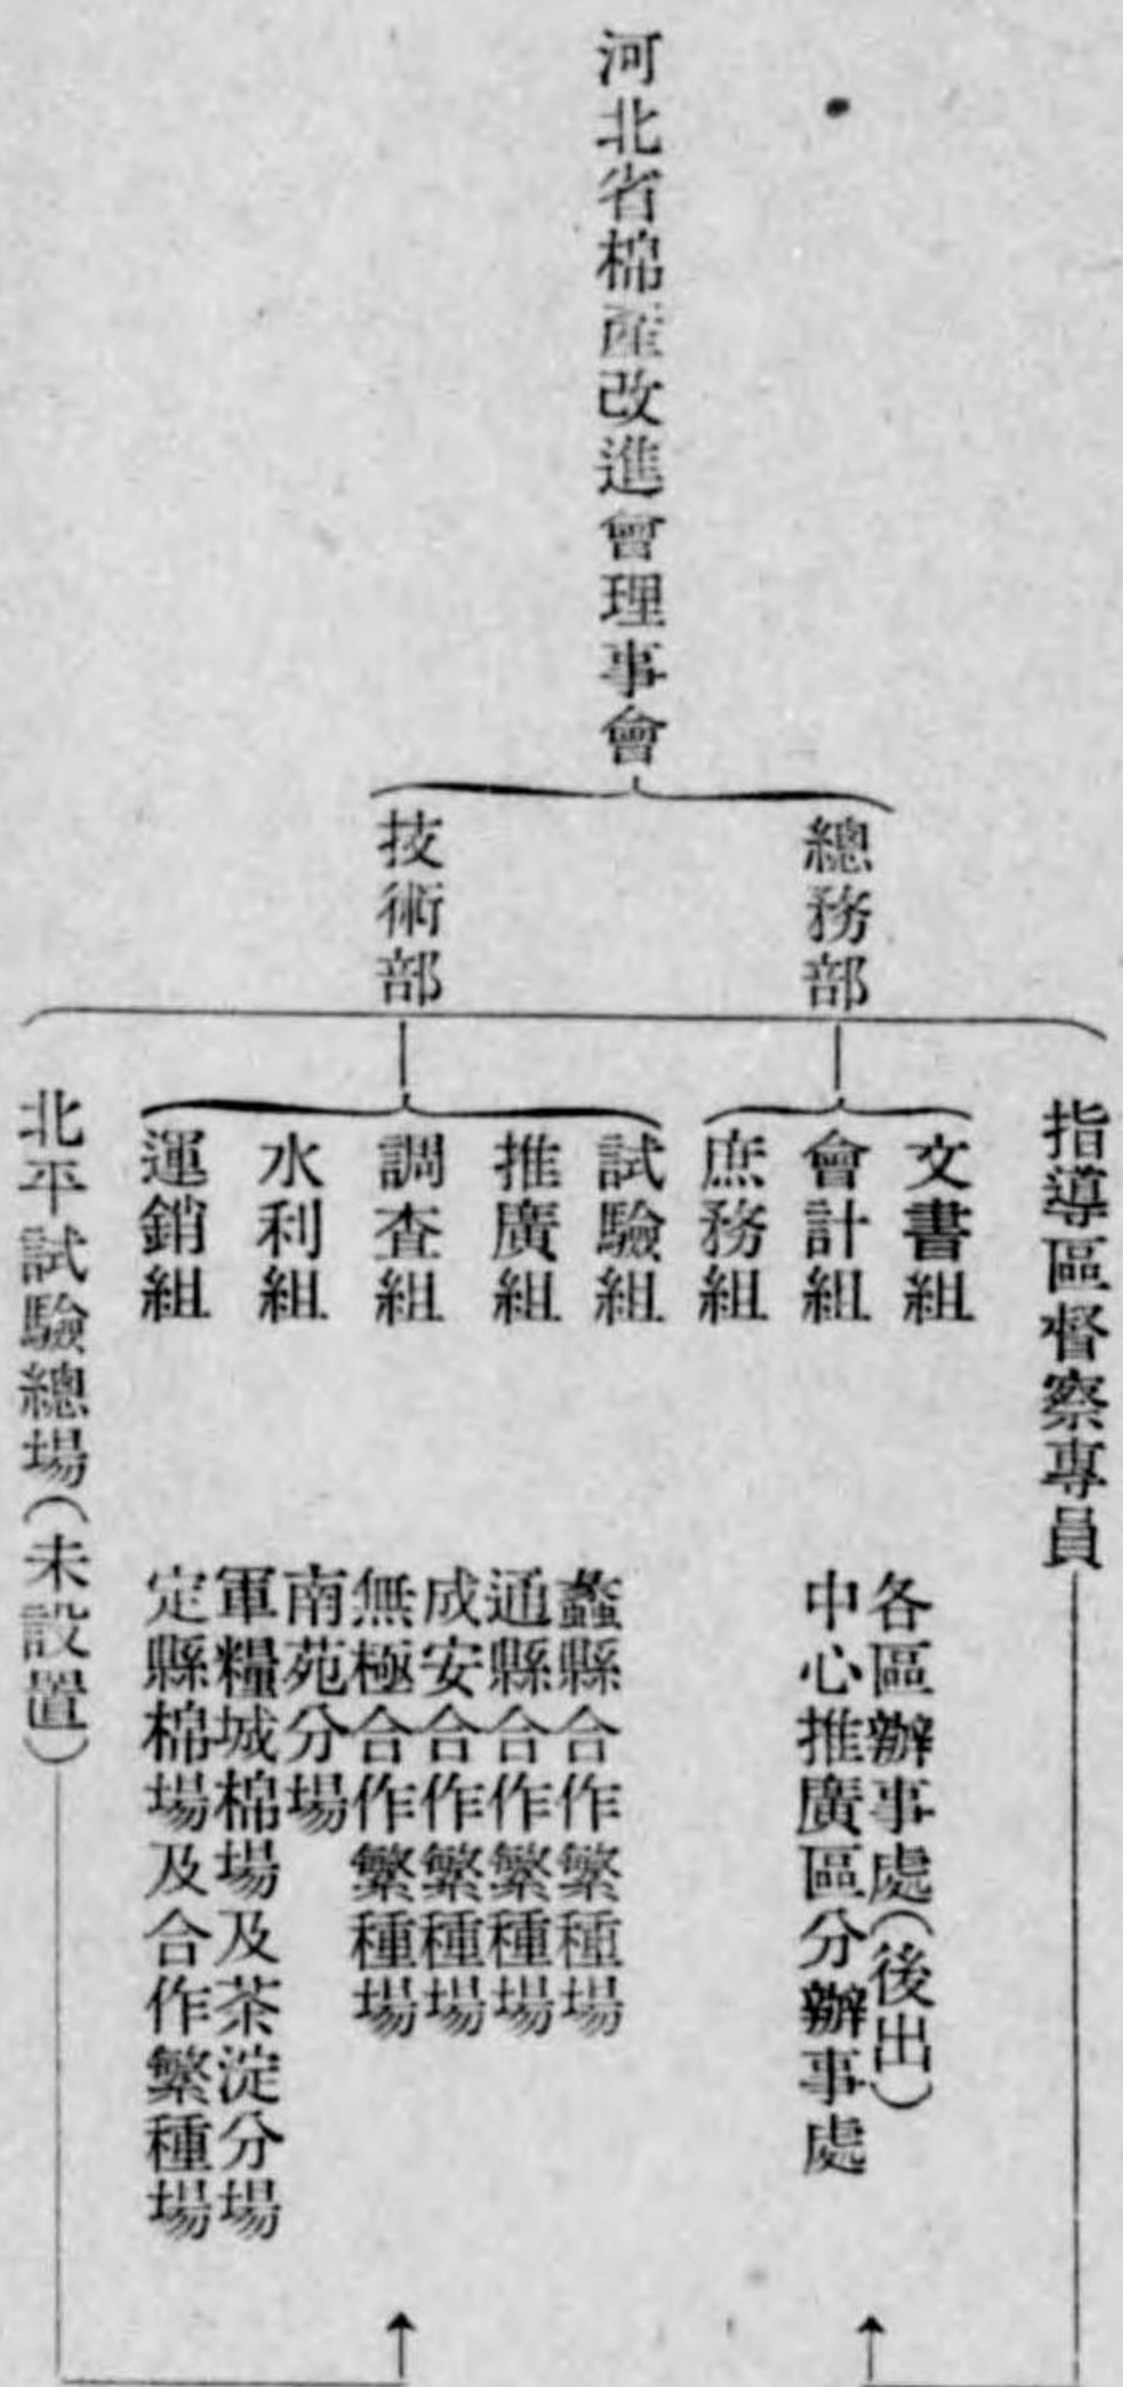 河北省棉產改進會理事會
總務部
技術部
指導區督察專員
文書組
會計組
庶務組
試驗組
推廣組
調查組
水利組
運銷組
北平試驗總場(未設置)
各區辦事處(後出)
中心推廣區分辦事處
蠡縣合作繁種場
通縣合作繁種場
成安合作繁種場
無極合作繁種場
南苑分場
軍糧城棉場及茶淀分場
定縣棉場及合作繁種場